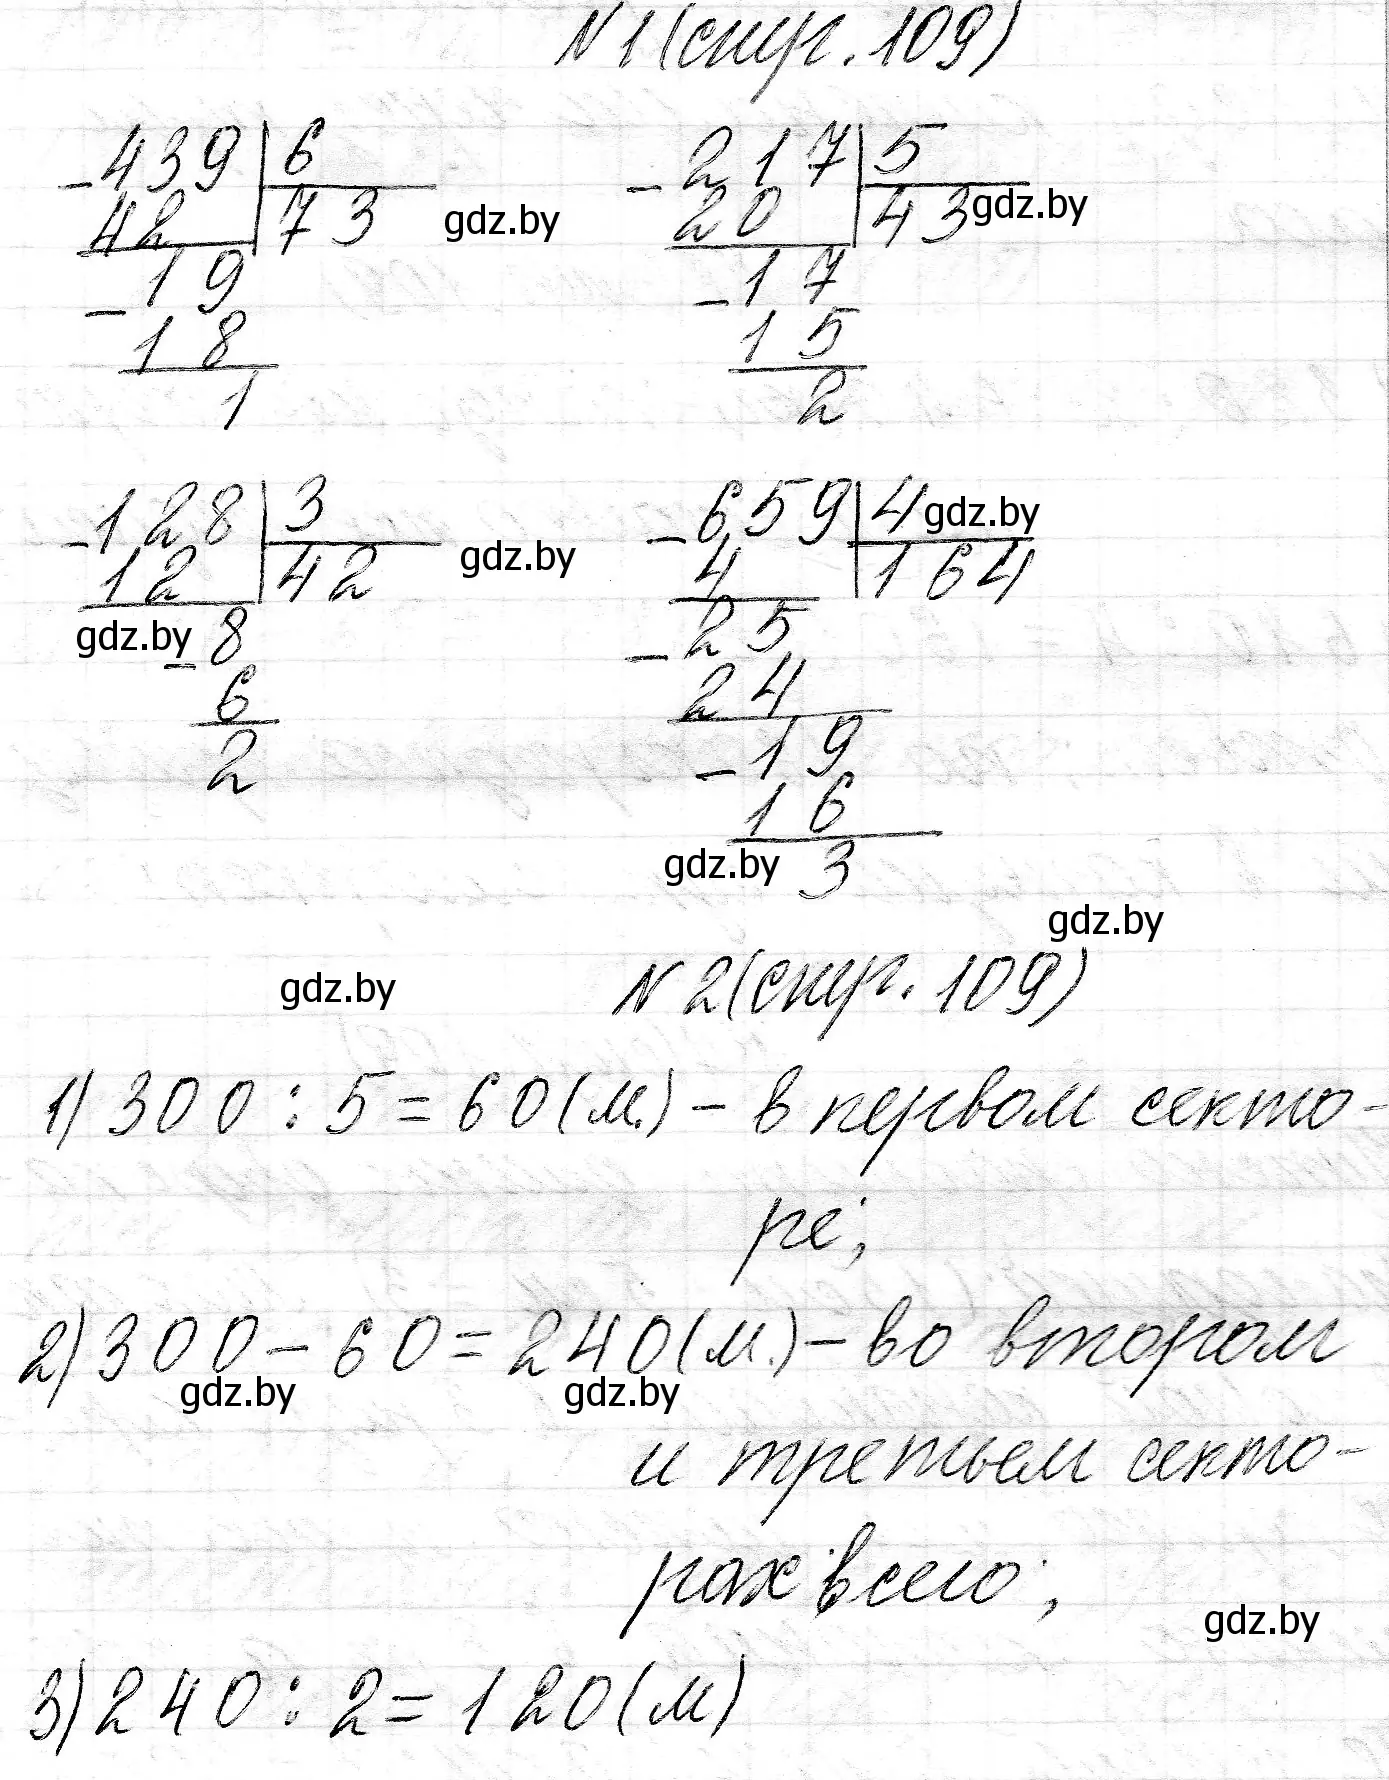 N1(стр. 109)
- 439 | 6 - 217 | 5
42 73 gdz.by 20 43 gdz.by
- 19 - 17
18 15
1 2
- 128 | 3 - 659 | 4 gdz.by
12 42 gdz.by 4 164
gdz.by - 8 - 25
6 24
2 - 19
16
gdz.by 3
gdz.by
gdz.by N2(стр. 109)
1) 300 : 5 = 60 (м.) - в первом секто-
ре;
2) 300 - 60 = 240 (м.) - во втором
gdz.by gdz.by
и третьем секто-
рах всего;
gdz.by
3) 240 : 2 = 120 (м)